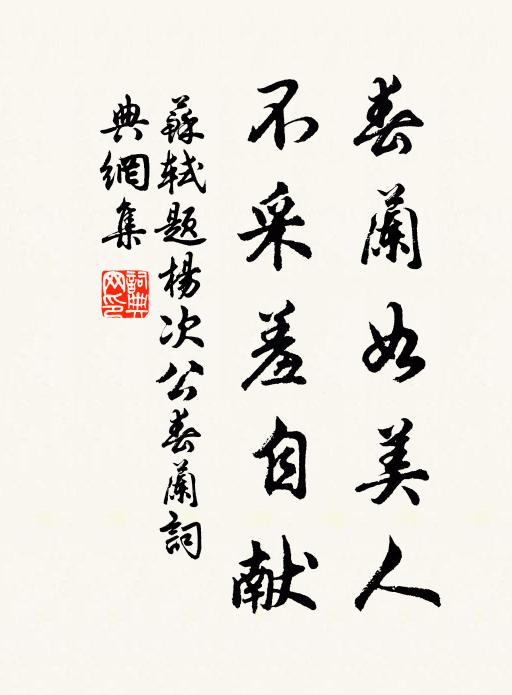 春蘭如美人
不采羞自献
蘇軾题楊次公春蘭詞
典網集
詞典
网印